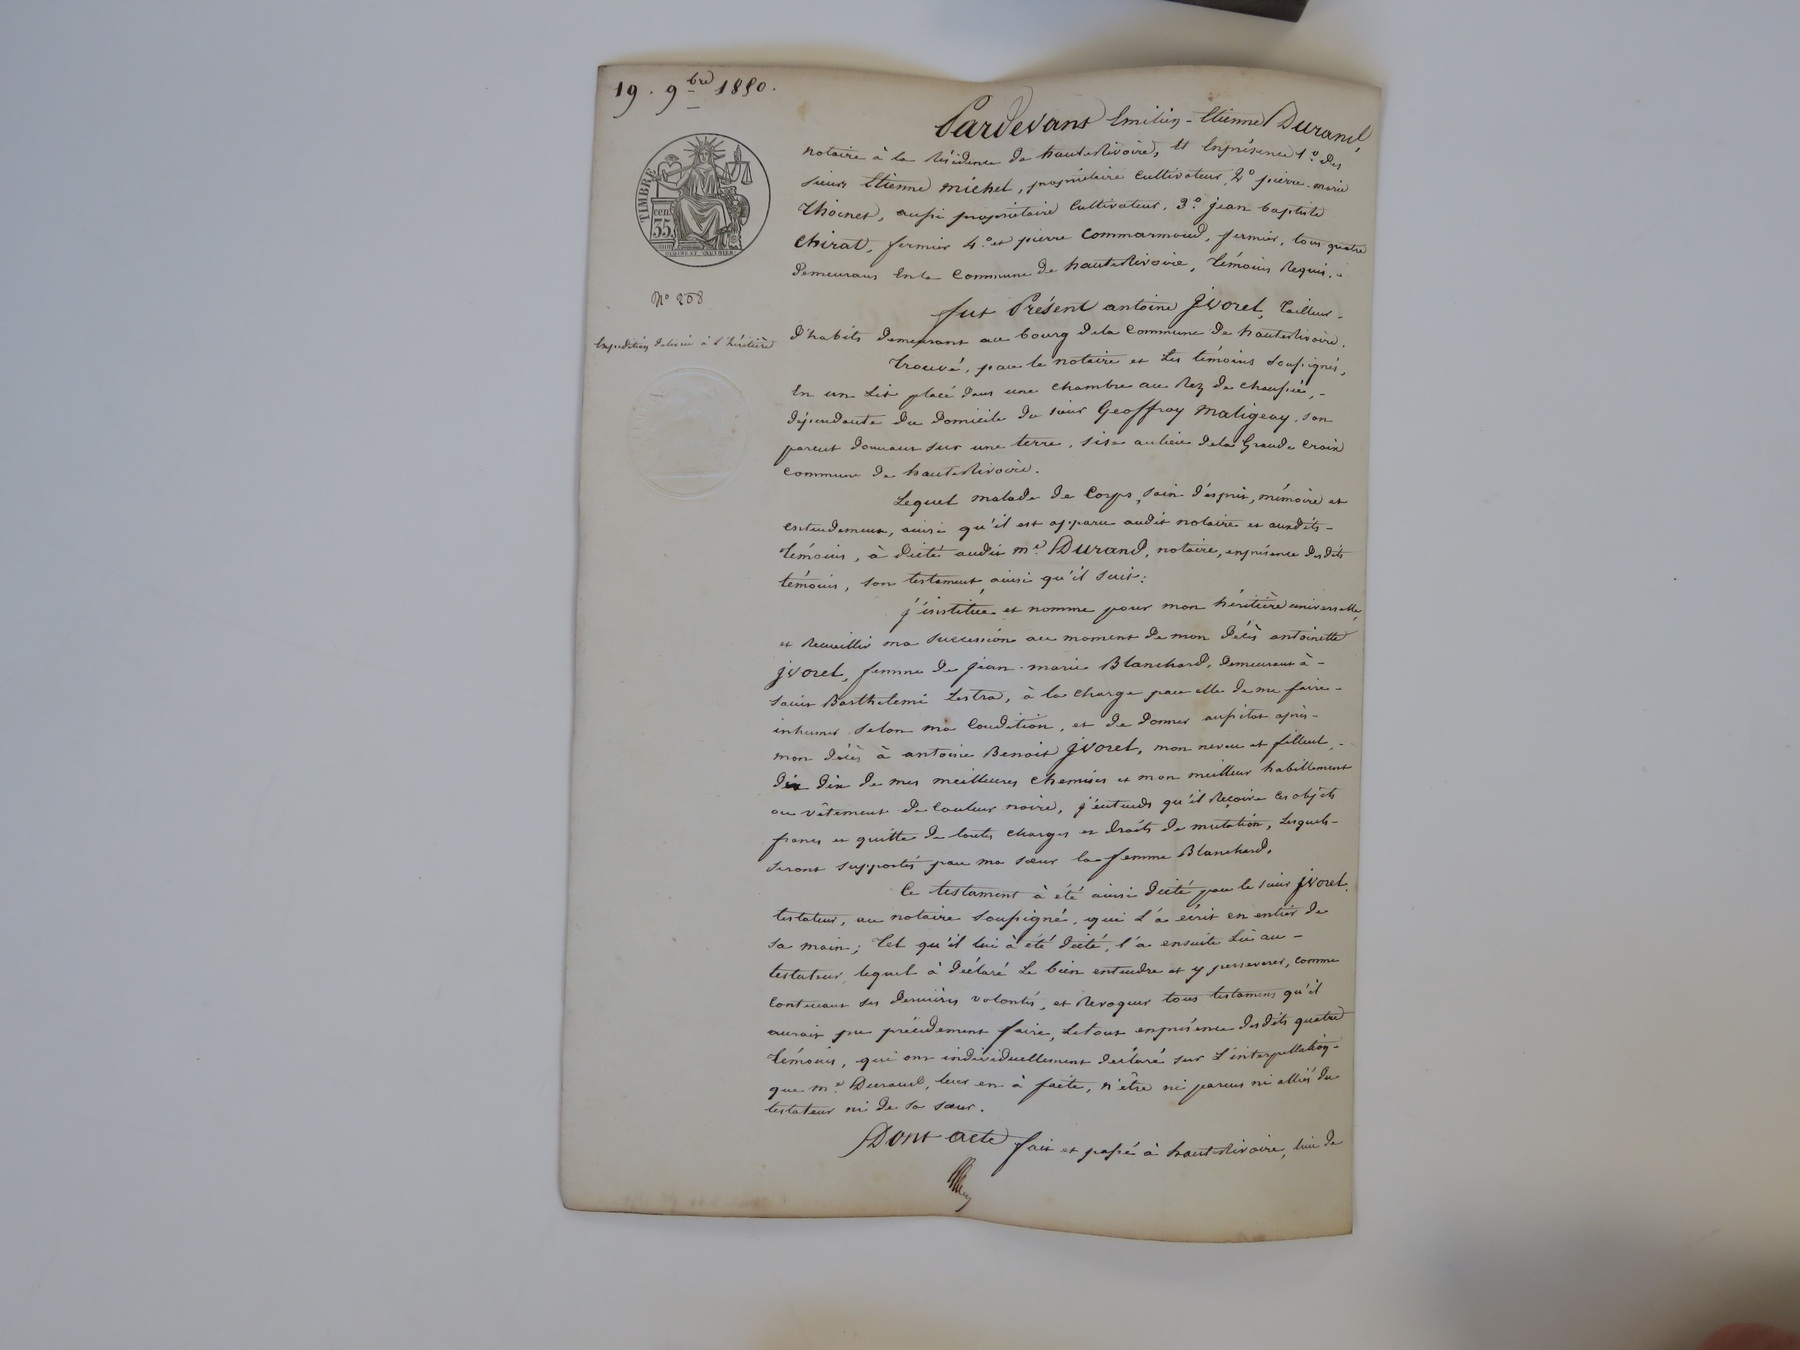 19. 9bre 1850.
Pardevant Emilien-Etienne Durand,
notaire à la Résidence de hauteRivoire, Et Enprésence 1.° des
sieurs Etienne michel, propriétaire Cultivateur, 2° pierre-marie
Thoinet, aussi propriétaire Cultivateur. 3.° jean baptiste
Chirat, fermier 4.° et pierre Commarmond, fermier, tous quatre
demeurans En la Commune de hauteRivoire, Témoins Requis.
TIMBRE
cen. 35
N° 208
fut Présent antoine jvoret, Tailleur-
d'habits demeurant au bourg dela Commune de hauteRivoire.
Expédition délivrée à l'héritière
Trouvé, par le notaire et Les témoins soussignés,
En un Lit placé dans une chambre au Rez de chaussée,-
dépendante du Domicile du sieur Geoffray Maligeay, son
parent donnant sur une terre, sise aulieu dela Grande Croix
commune de hauteRivoire.
Lequel malade de Corps, sain d'esprit, mémoire et
entendement, ainsi qu'il est apparu audit notaire et auxdits-
Témoins, à dicté audit me. Durand, notaire, enprésence desdits
témoins, son testament, ainsi qu'il suit:
j'institue et nomme pour mon héritière universelle,
et Recueillir ma succession au moment de mon décès antoinette
jvoret, femme de jean-marie Blanchard, demeurant à-
saint Barthelemi Lestra, à la charge par elle de me faire-
inhumer selon ma Condition, et de donner aussitot après-
mon décès à antoine Benoit jvoret, mon neveu et filleul,-
dix dix de mes meilleures chemises et mon meilleur habillement
ou vêtement de Couleur noire, j'entends qu'il Reçoive ces objets
francs et quitte de toutes charges et droits de mutation, Lesquels-
seront supportés par ma sœur la femme Blanchard.
Ce testament à été ainsi dicté par le sieur jvoret.
testateur, au notaire soussigné, qui L'a écrit en entier de
sa main; Tel qu'il lui à été dicté, l'a ensuite Lu au-
testateur, lequel à déclaré Le bien entendre et y perseverer, comme
Contenant ses dernières volontés, et Revoquer tous testamens qu'il
aurait pu précédement faire, Letout enprésence desdits quatre
Témoins, qui ont individuellement déclaré sur L'interpellation-
que me. Durand, leur en à faite, n'être ni parens ni alliés du
testateur ni de sa sœur.
Dont acte fait et passé à hauteRivoire, lieu de